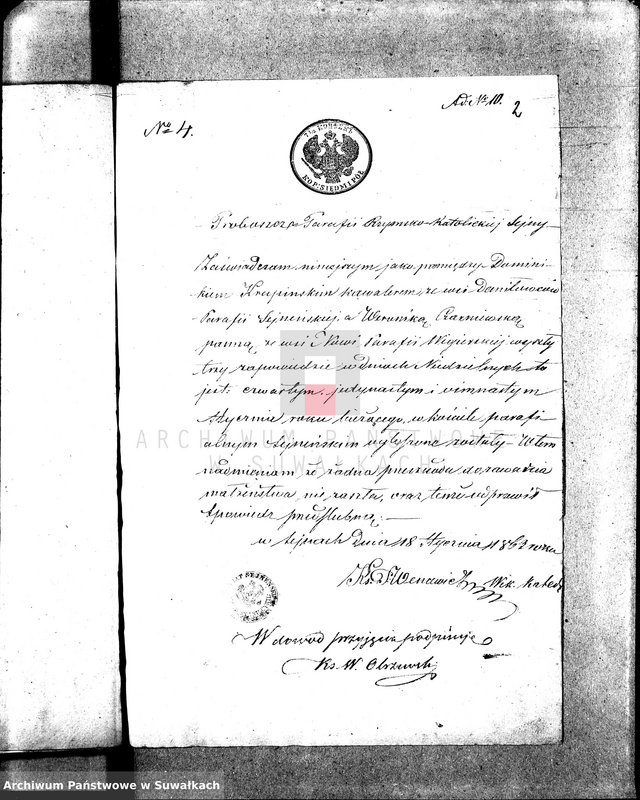 Ad. No 10. 2
No 4.
7½ KOPIEJEK
KOP: SIEDM I PÓŁ
Proboszcz Parafii Rzymsko-Katolickiej Sejny
Zaświadczam niniejszym jako pomiędzy Domini-
kiem Krupinskim kawalerem, ze wsi Daniłowców
Parafii Sejneńskiej, a Weroniką Czarniewską
panną ze wsi Parafii Wigierskiej wyszły
trzy zapowiedzie w dniach Niedzielnych to
jest: czwartym, jedynastym i ośmnastym
Stycznia roku bieżącego, w kościele parafi-
alnym Sejneńskim ogłoszone zostały – O tem
nadmieniam że żadna przeszkoda do zawarcia
małżeństwa nie zaszła, oraz temu odprawił
Spowiedź przedślubną. —
w Sejnach Dnia 18 Stycznia 1863 roku
Ks. Wik. Kated
W dowód przyjęcia podpisuję
Ks. W.
ARCHIWUM PAŃSTWOWE
W SUWAŁKACH
Archiwum Państwowe w Suwałkach